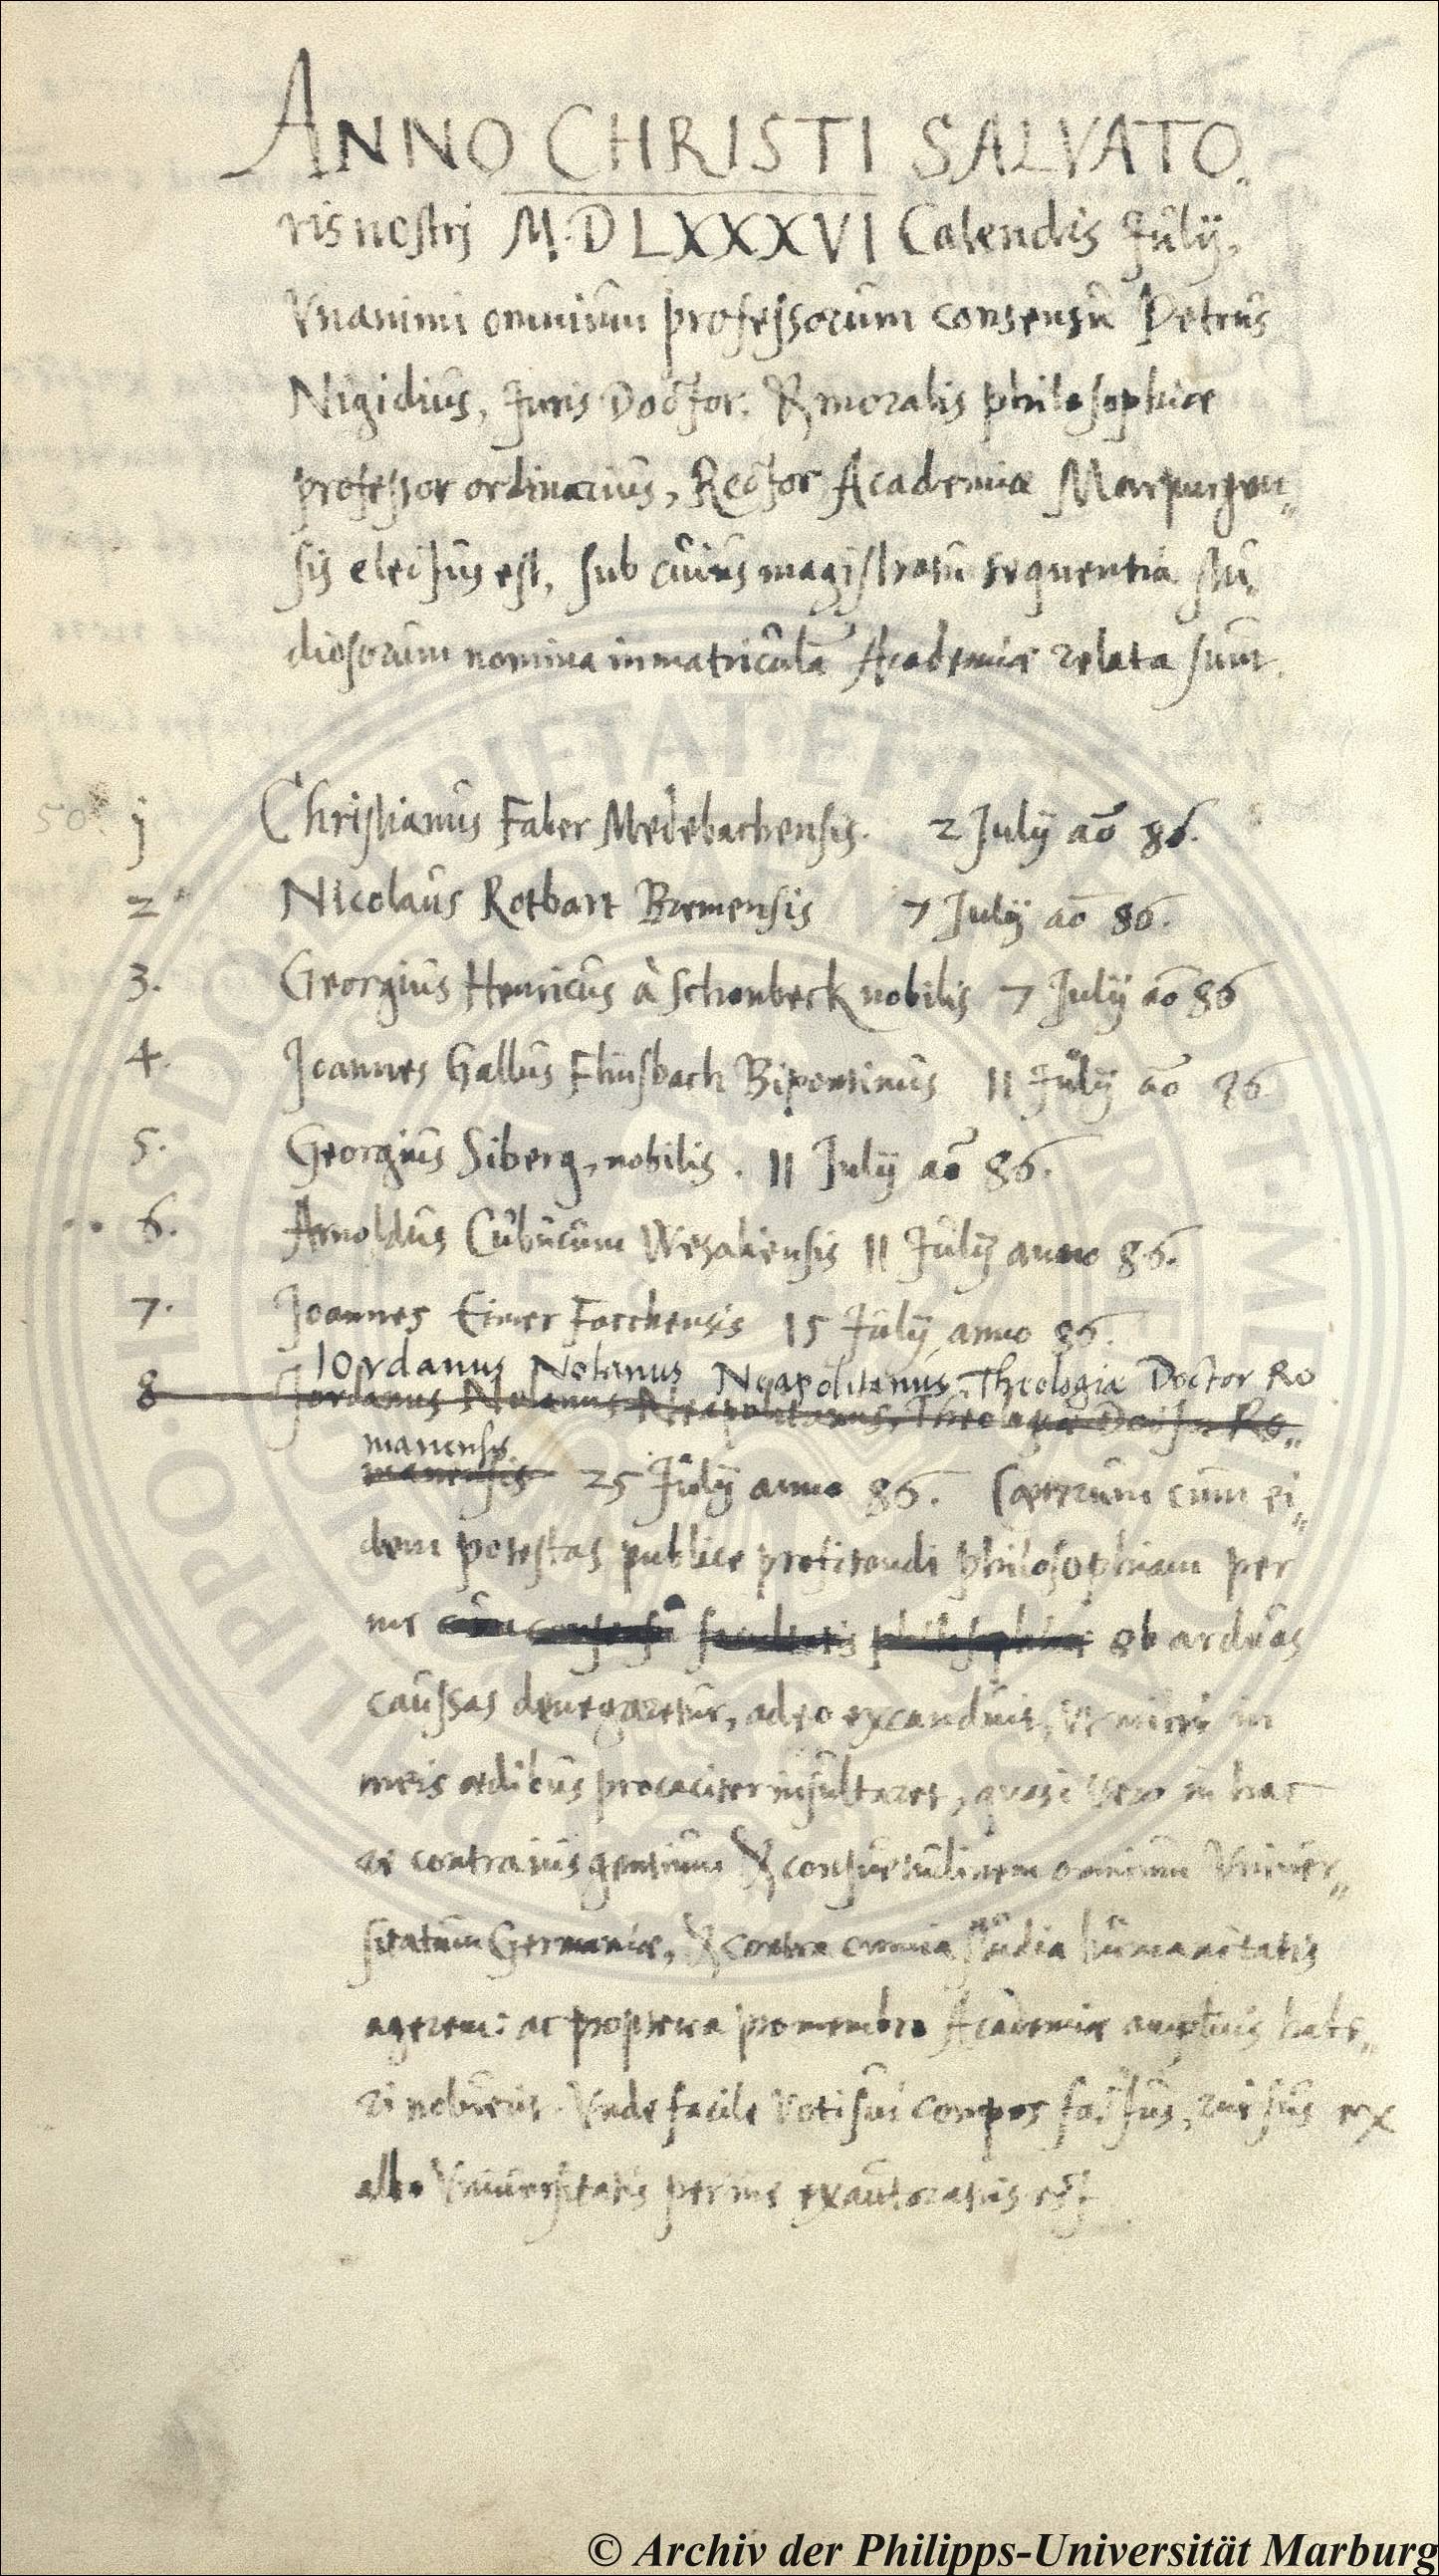 ANNO CHRISTI SALVATO„
ris nostrj M.D LXXXVI Calendis Julÿ,
Vnanimi omnium professorum consensu Petrus
Nigidius, Juris Doctor. & moralis philosophiæ
professor ordinarius, Rector Academiæ Marpurgen„
sis electus est, sub cuius magistratu sequentia stu„
diosorum nomina in matriculam Academiæ relata sunt.
50
j Christianus Faber Medebachensis. 2 Julÿ aō 86.
2 Nicolaus Rotbart Bremensis 7 Julÿ aō 86.
3. Georgius Henricus à Schonbeck nobilis 7 Julÿ aō 86
4. Joannes Gallus Flinsbach Bipontinus 11 Julÿ aō 86
5. Georgius Siberg, nobilis. 11 Julÿ aō 86.
6. Arnoldus Cubucum Wesaliensis 11 Julÿ anno 86.
7. Joannes Eimer 15 Julÿ anno 86.
IOrdanus Nolanus Neapolitanus, Theologiæ Doctor Ro
8 Jordanus Nolanus Neapolitanus, Theologiæ Doctor Ro„
manensis
manensis 25 Julÿ anno 86. Cæterum cum ei„
dem potestas publice profitendi philosophiam per
me cum consensu facultatis philosophicæ ob arduas
caussas denegaretur, adeo excanduit, ut mihi in
meis ædibus procaciter insultaret, quasi vero in hac
re contra ius gentium & consuetudinem omnium Vniuer„
sitatum Germaniæ, & contra omnia studia humanitatis
agerem: ac propterea pro membro Academiæ amplius habe„
ri noluerit. Vnde facile voti sui compos factus, rursus ex
albo Vniuersitatis per me exautoratus est
© Archiv der Philipps-Universität Marburg